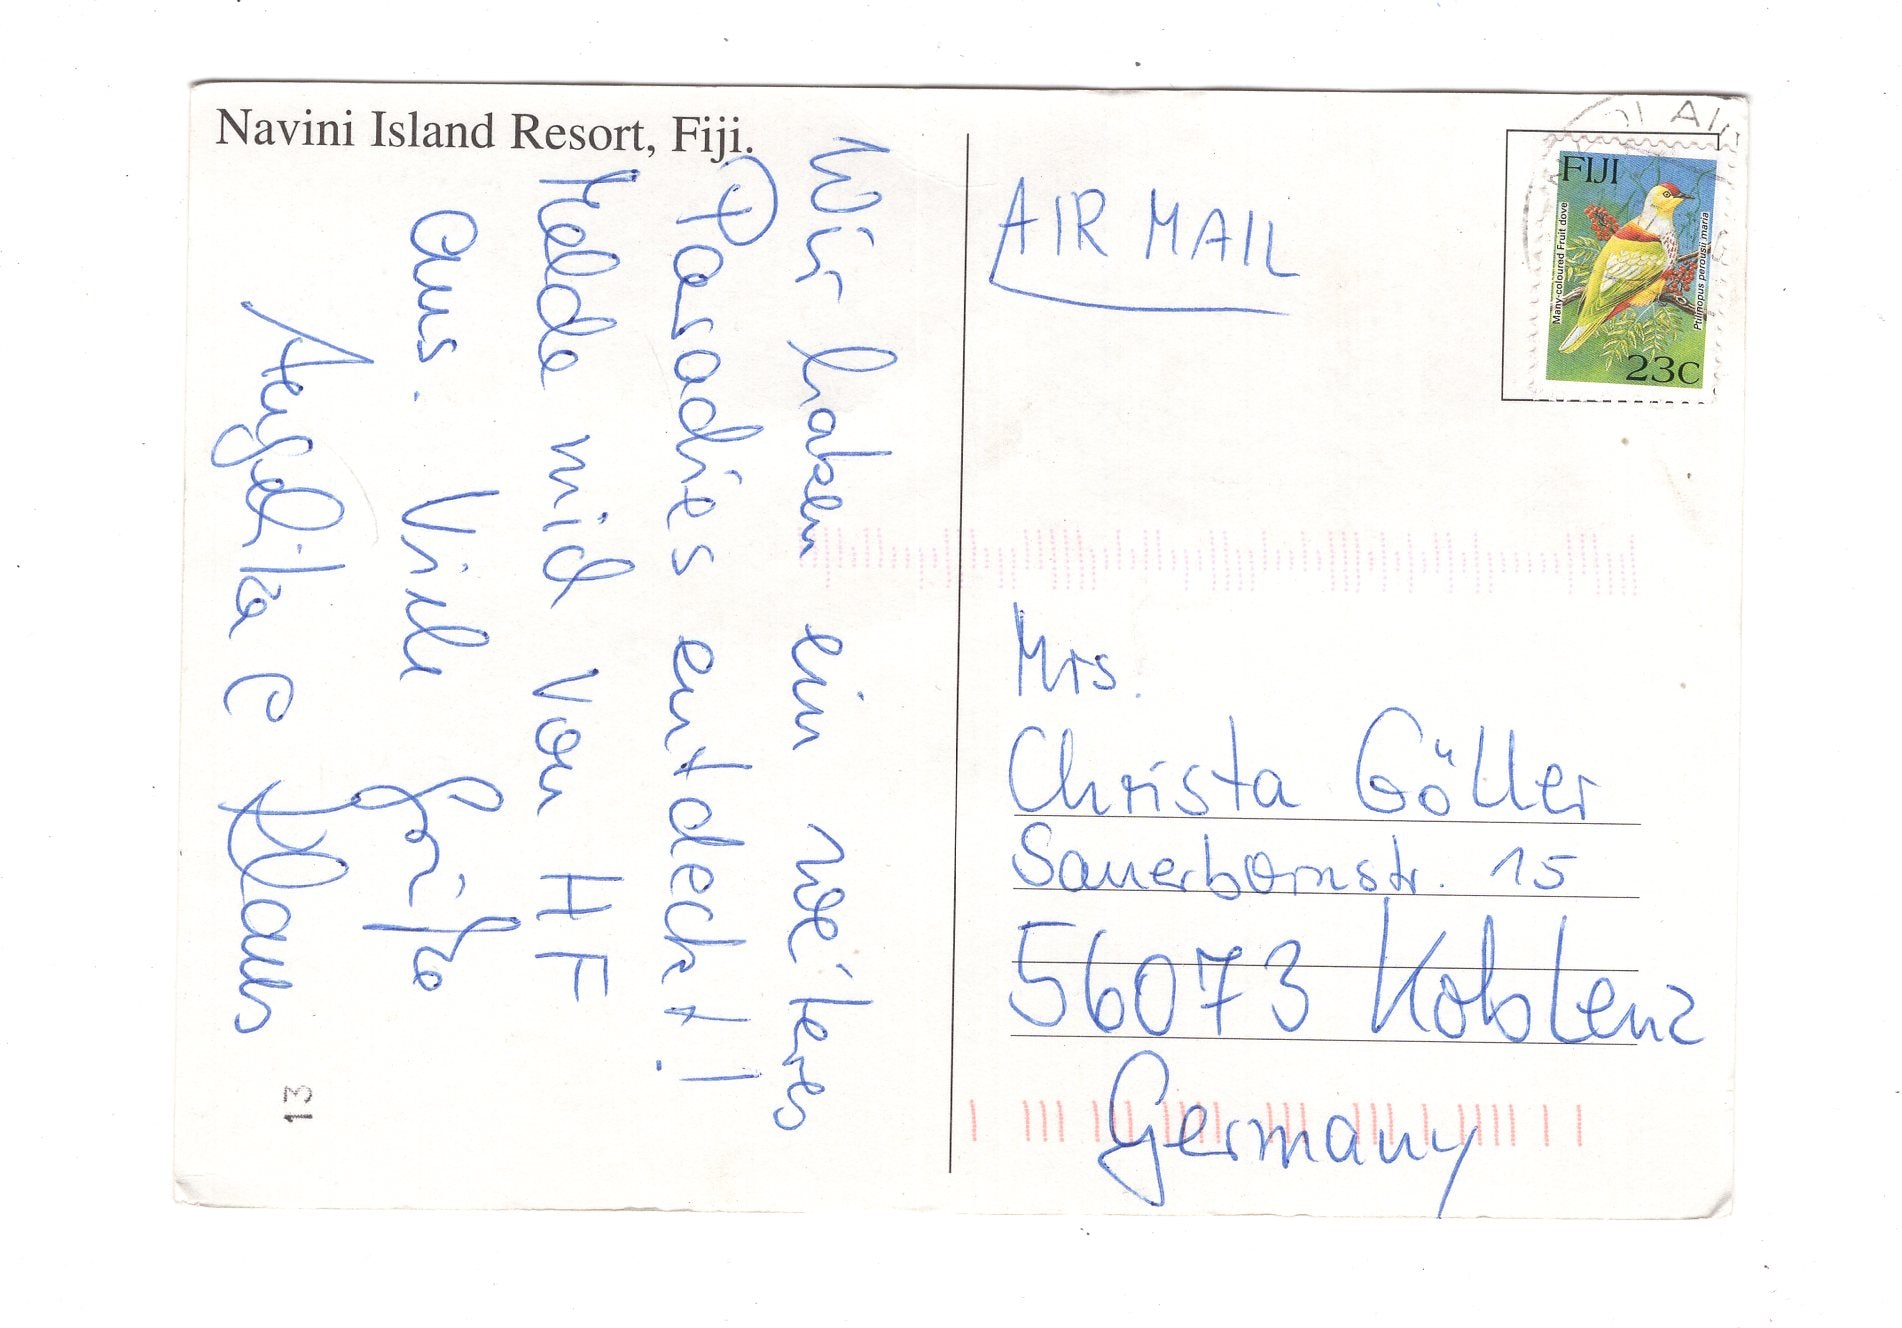 Navini Island Resort, Fiji.
Wir haben ein weiteres
Paradies entdeckt!
Melde mich von HF
aus. Viele Grüße
Angelika & Klaus
13
AIR MAIL
FIJI
Many-coloured Fruit dove
Ptilinopus perousii mariae
23c
Mrs.
Christa Göller
Sauerbornstr. 15
56073 Koblenz
Germany